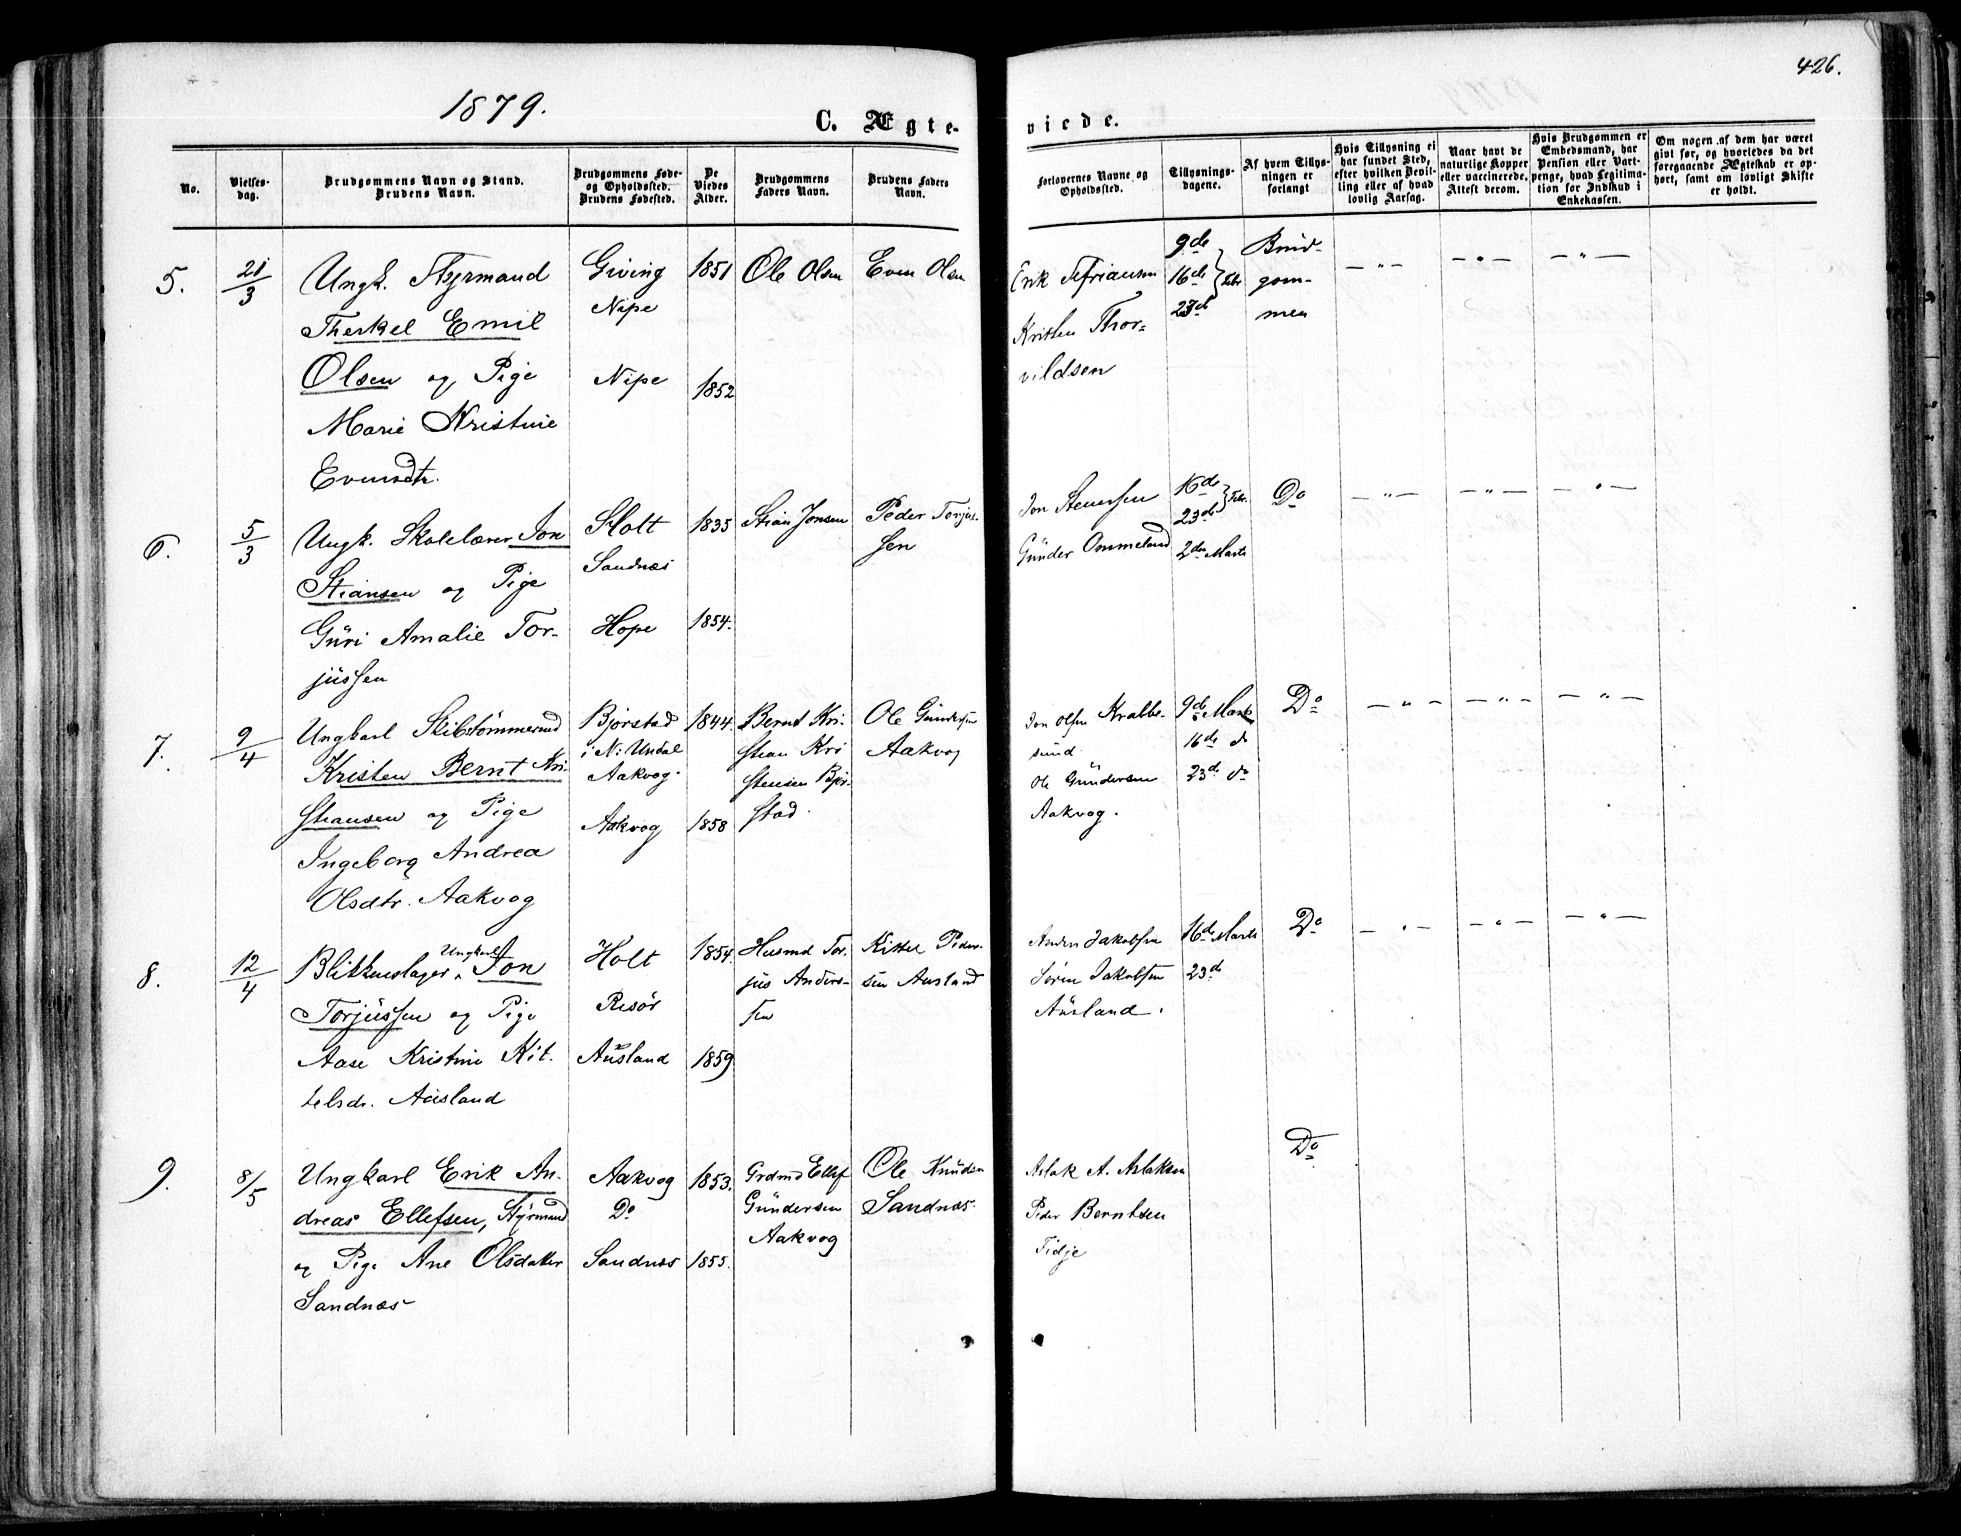 426.
1879.
C. Ægte-
viede.
No.
Vielses-
dag.
Brudgommens Navn og Stand.
Brudens Navn.
Brudgommens Føde-
og Opholdssted.
Brudens Fødested.
De
Viedes
Alder.
Brudgommens
Faders Navn.
Brudens Faders
Navn.
Forlovernes Navne og
Opholdssted.
Tillysnings-
dagene.
Af hvem Tillys-
ningen er
forlangt
Hvis Tillysning ei
har fundet Sted,
efter hvilken Bevil-
ling eller af hvad
lovlig Aarsag.
Naar havt de
naturlige Kopper
eller vaccinerede.
Attest derom.
Hvis Brudgommen er
Embedsmand, har
Pension eller Vart-
penge, hvad Legitima-
tion for Indskud i
Enkekassen.
Om nogen af dem har været
givt før, og hvorledes da det
foregaaende Ægteskab er op-
hørt, samt om lovligt Skifte
er holdt.
5.
21/3
Ungk. Styrmand
Therkel Emil
Olsen og Pige
Marie Kristine
Evensdtr.
Giving
Nipe
Nipe
1851
1852
Ole Olsen
Even Olsen
Erik
Kristen Thor-
vildsen
9de
16de Febr
23de
Brud-
gom-
men
— " —
— " —
— " —
6.
5/3
Ungk. Skolelærer Jon
Stiansen og Pige
Güri Amalie Tor-
jüssen
Holt
Sandnæs
Hope
1835
1854.
Stian Jonsen
Peder Torjus-
sen
Jon Stensen
Günder Ommeland
16de
23de Febr.
2den Marts
Do
— " —
— " —
— " —
7.
9/4
Ungkarl Skibstømmermd
Kristen Bernt Kri-
stiansen og Pige
Ingeborg Andrea
Olsdtr. Aakvog
Bjørstad
i N: Undal
Aakvog.
Aakvog
1844.
1858
Bernt Kri-
stian Kri
stensen Bjør-
stad.
Ole Gündersen
Aakvog
Jon Olsen Krabbe-
sund.
Ole Gündersen
Aakvog.
9de Marts
16de do
23de do
Do
— " —
— " —
— " —
8.
12/4
Ungkarl
Blikkenslager Jon
Torjüssen og Pige
Aase Kristine Kit-
telsdr. Aüsland
Holt
Risør
Aüsland
1854.
1859
Husmd Tor-
jus Anders-
sen
Kittel Peder-
sen Ausland
Anders Jakobsen
Søren Jakobsen
Aüsland.
16de Marts
23de
Do
— " —
— " —
— " —
9.
8/5
Ungkarl Erik An-
dreas Ellefsen, Styrmand
og Pige Ane Olsdatter
Sandnæs
Aakvog
Do
Sandnæs
1853.
1855.
Grdmd Ellef
Gündersen
Aakvog
Ole Knüdsen
Sandnæs.
Aslak A. Aslaksen
Peder Berntsen
Fidje
Do